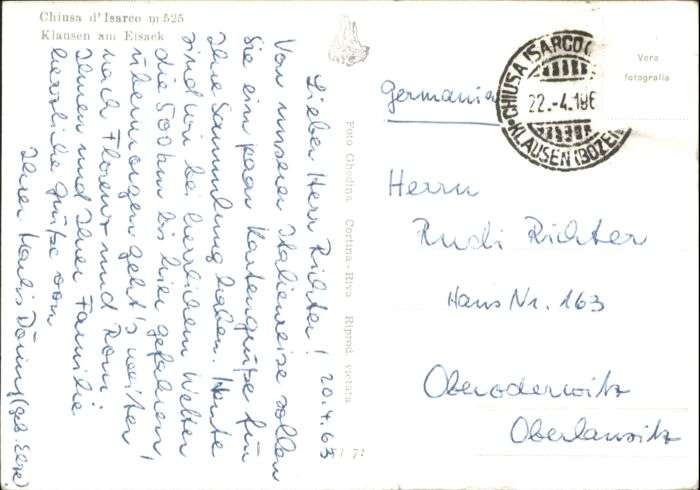 Chiusa d'Isarco m 525
Klausen am Eisack
Lieber Herr Richter! 20.4.63
Von unserer Italienreise sollen
Sie ein paar Kartengrüße für
Ihre Sammlung haben. Heute
sind wir bei herrlichem Wetter
die 500 km bis hier gefahren,
übermorgen geht's weiter
nach Florenz und Rom.
Ihnen und Ihrer Familie
herzliche Grüße von
Ihrer
Foto Ghedina Cortina-Riva Riprod. vietata
Germania
CHIUSA ISARCO
22.-4.196
KLAUSEN (BOZEN
Vera
fotografia
Herrn
Rudi Richter
Haus Nr. 163
Oberoderwitz
Oberlausitz